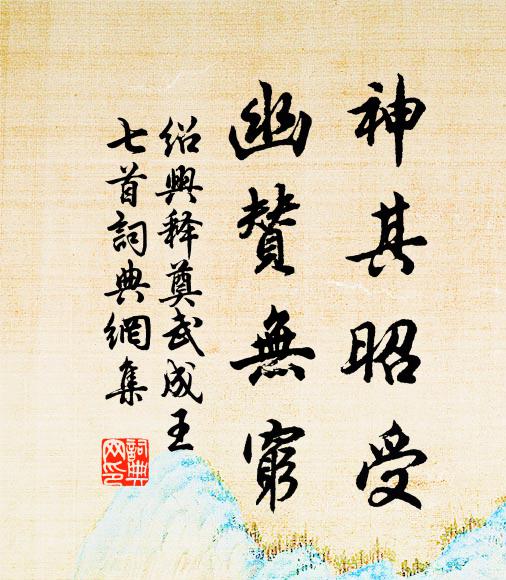 神其昭受
幽赞無窮
绍興释奠武成王
七首詞典網集
詞典網印